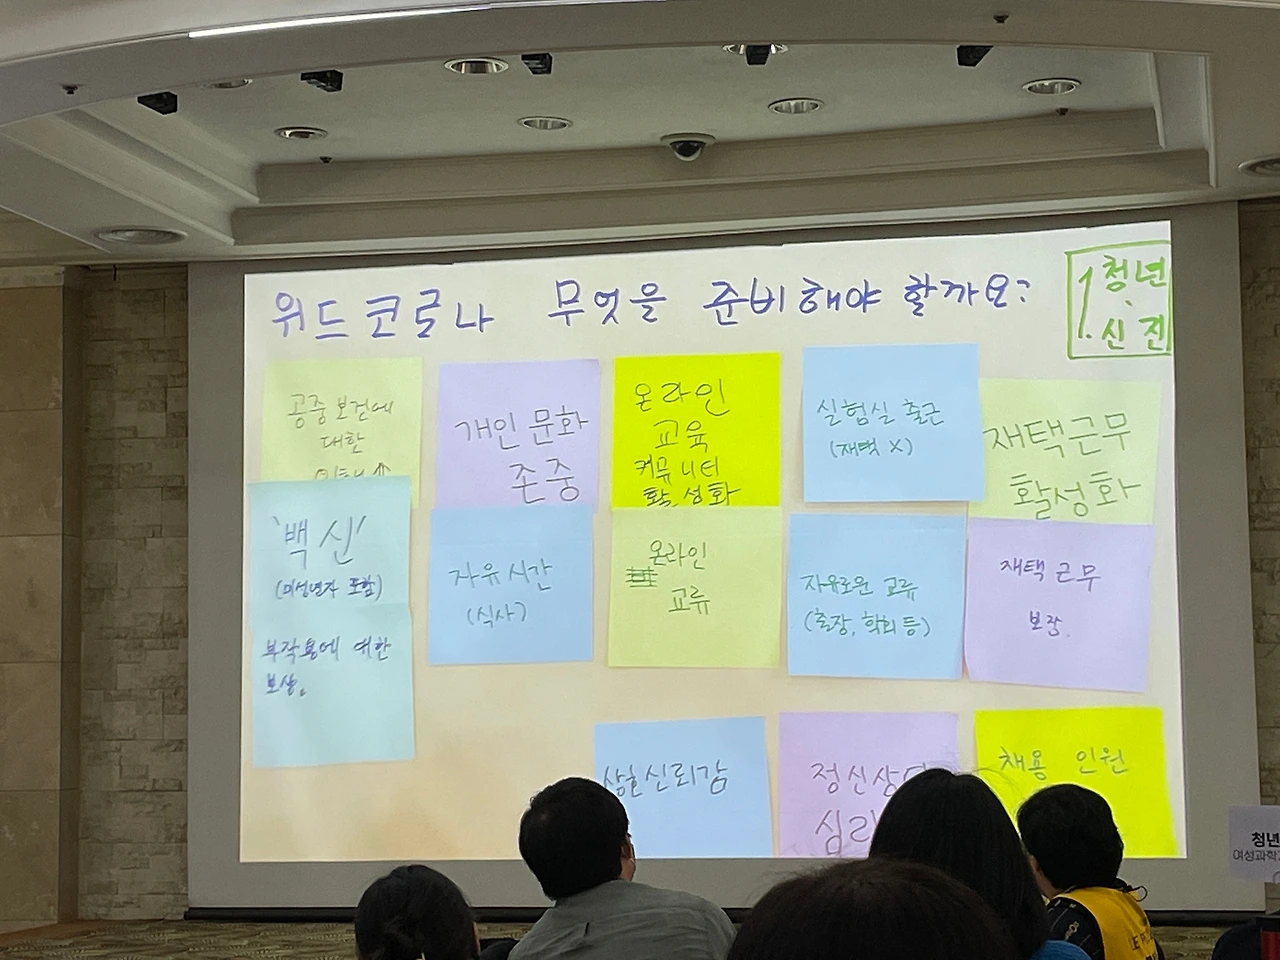 위드코로나 무엇을 준비해야 할까요?
1. 청년
·
신진
공중보건에
대한
개인 문화
존중
온라인
교육
커뮤니티
활성화
실험실 출근
(재택 X)
재택근무
활성화
'백신'
(미성년자 포함)
부작용에 대한
보상.
자유시간
(식사)
온라인
교류
자유로운 교류
(출장, 학회 등)
재택 근무
보장.
상호신뢰감
정신상담
심리
채용 인원
청년
여성과학